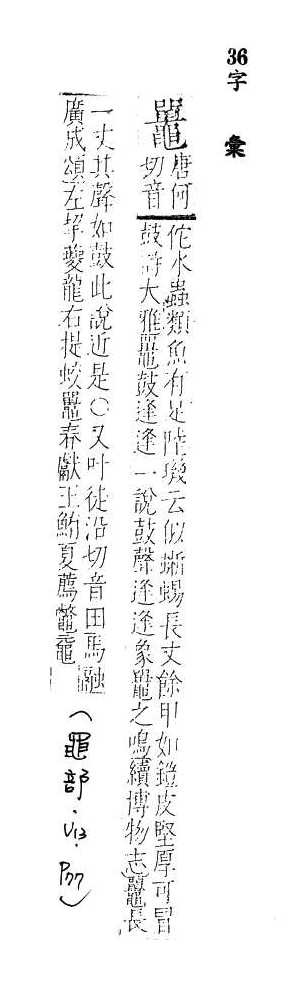 36字 彙
鼉
唐何
切音
佗水蟲類魚有足陸璣云似蜥蜴長丈餘甲如鎧皮堅厚可冒
鼓詩大雅鼉鼓逢逢一說鼓聲逢逢象鼉之鳴續博物志鼉長
一丈其聲如鼓此說近是○又叶徒沿切音田馬融
廣成頌左挈夔龍右提蛟鼉春獻王鮪夏薦鱉黿
(黽部.V13.P77)